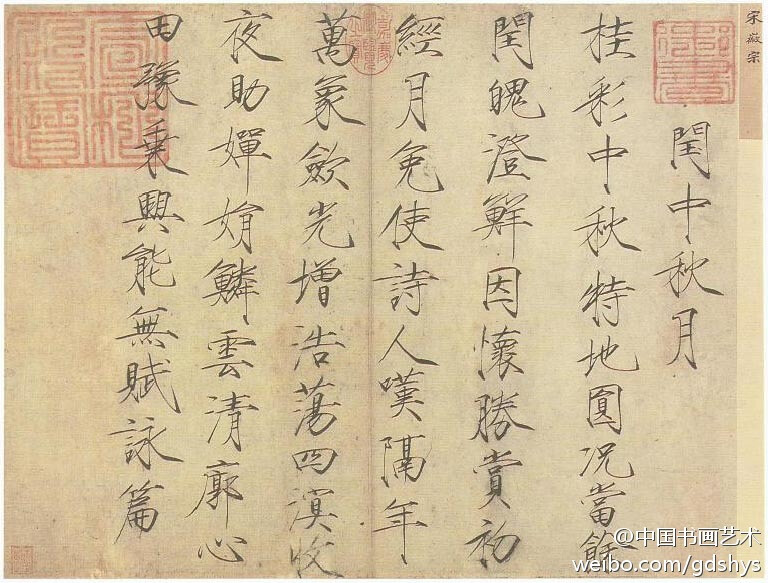 宋徽宗
閏中秋月
桂彩中秋特地圓况當餘
閏魄澄鮮因懷勝賞初
經月免使詩人嘆隔年
萬象歛光增浩蕩四溟收
夜助嬋娟鱗雲清廓心
田豫乘興能無賦詠篇
@中国书画艺术
weibo.com/gdshys